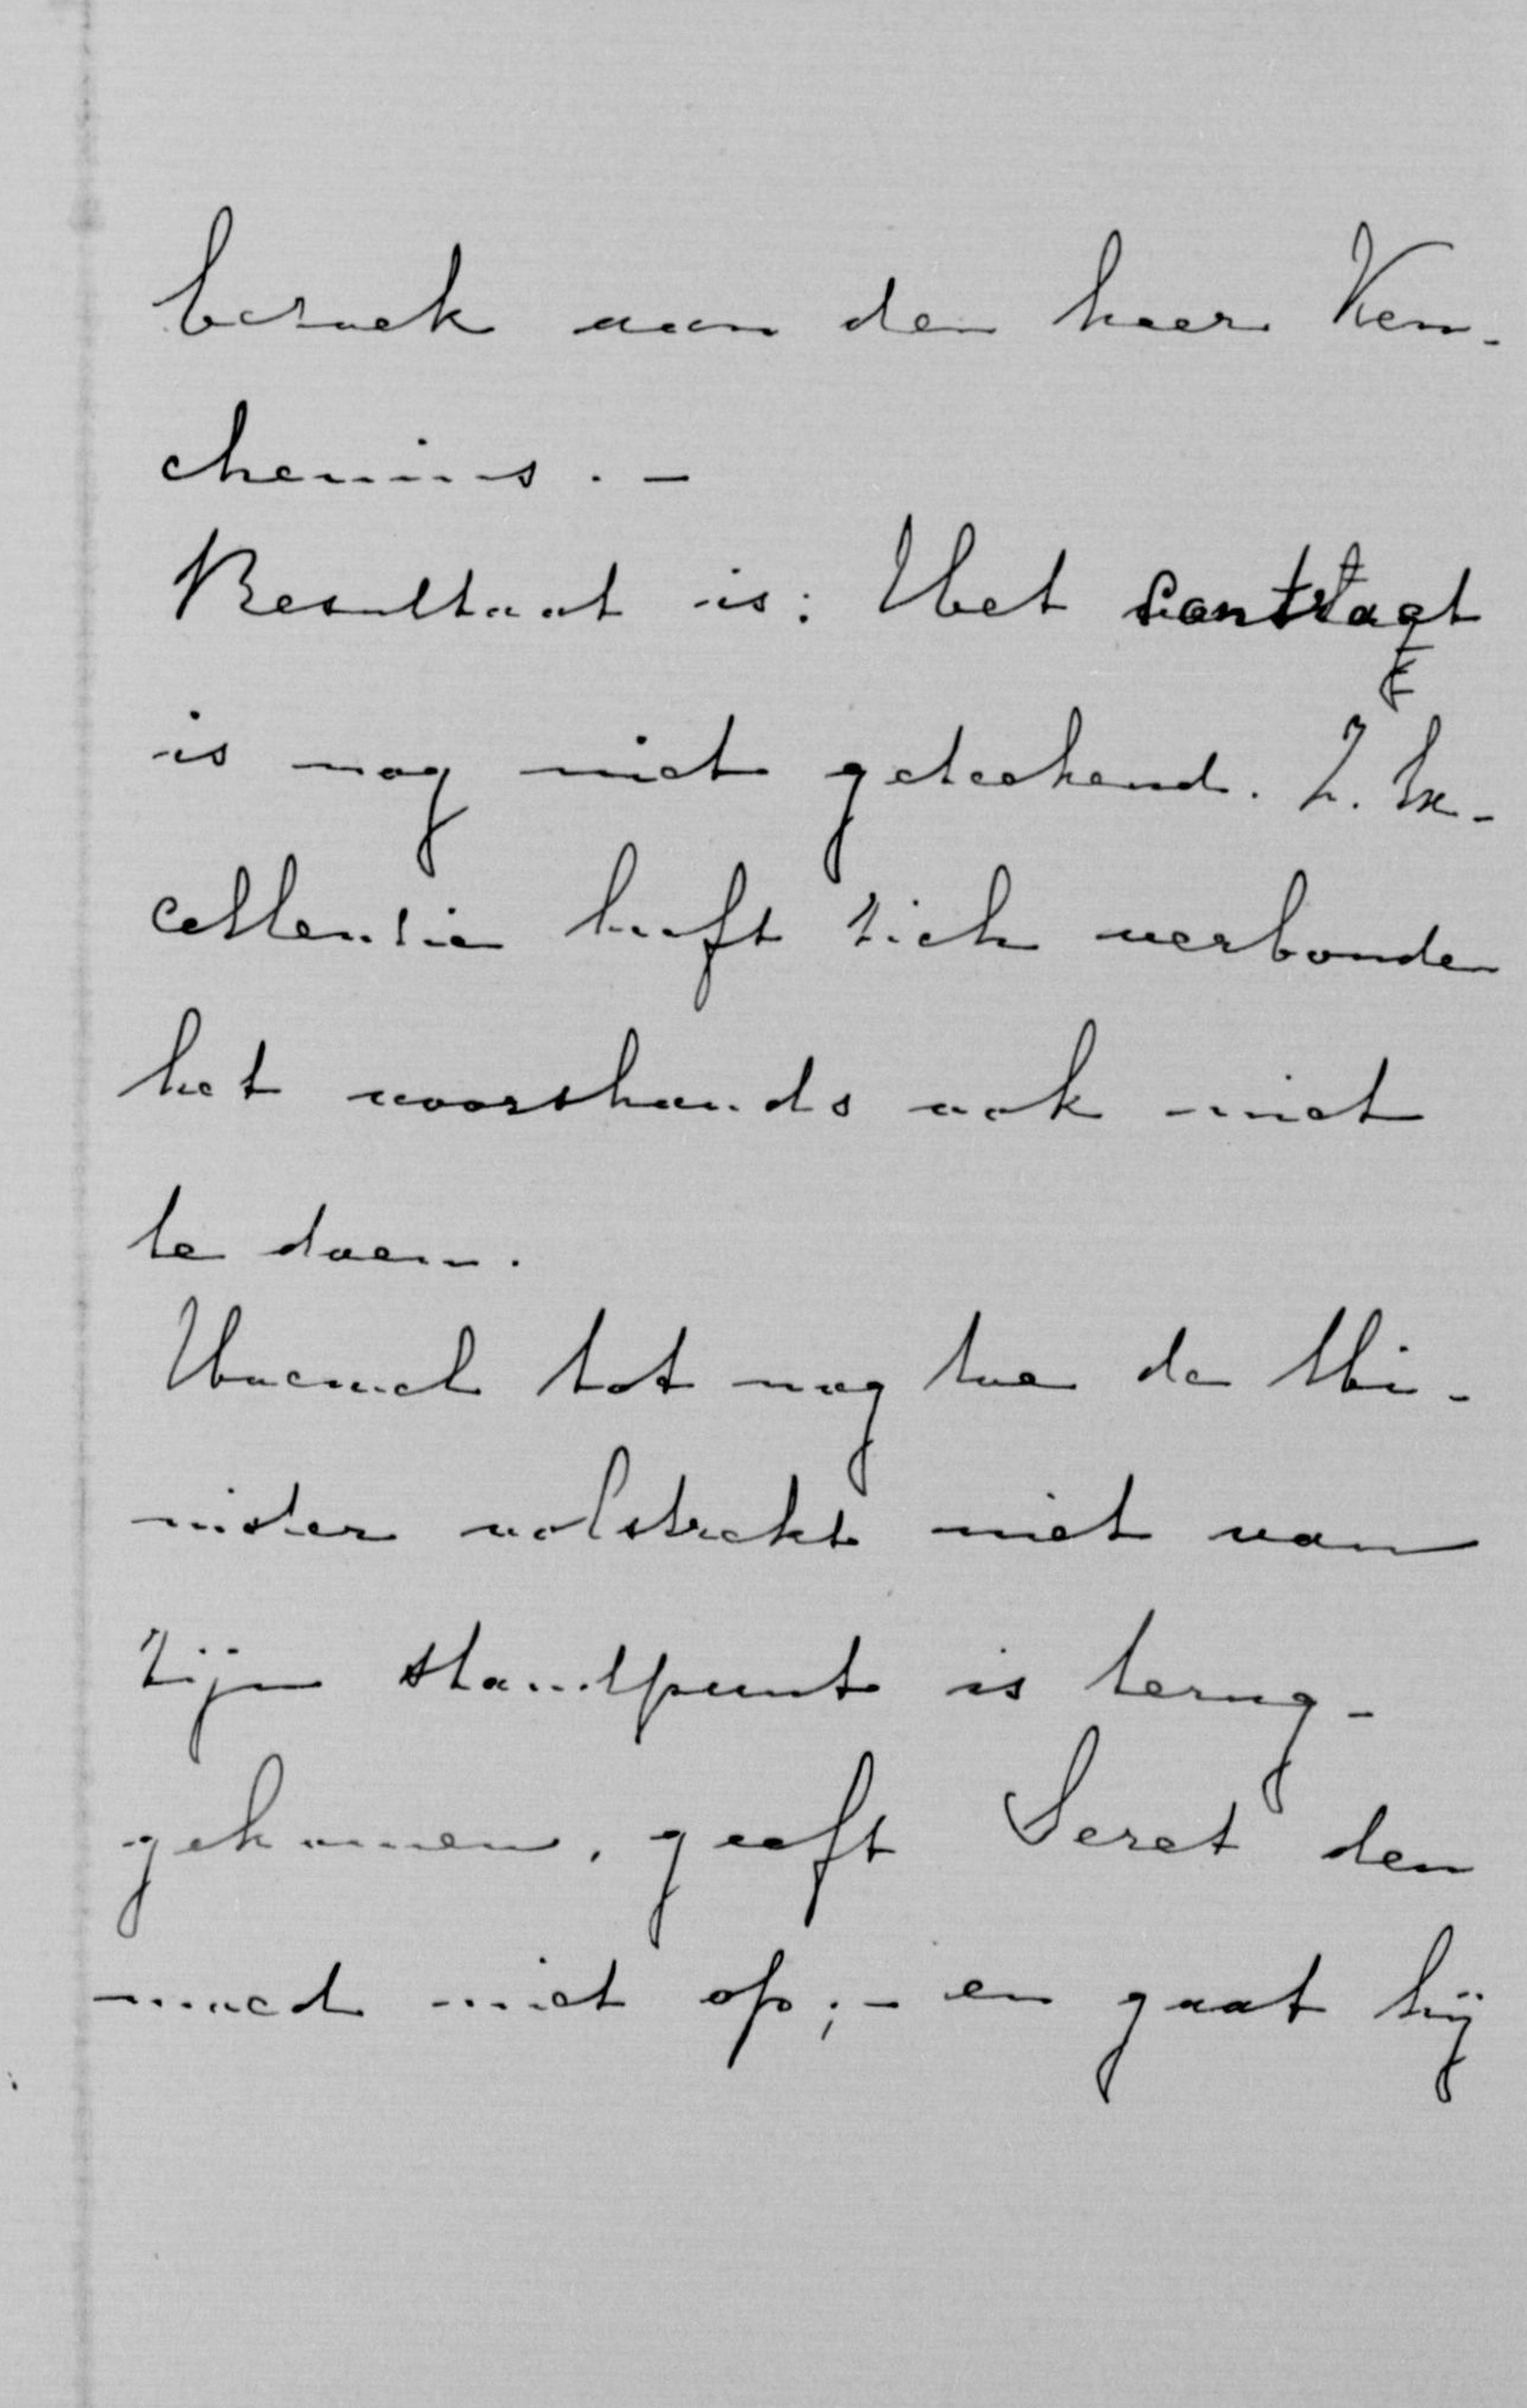 bezoek aan den heer Keu-
chenius. -
Resultaat is: Het contract
is nog niet geteekend. Z. Ex-
cellensie heeft zich verbonden
het voorshands ook niet
te doen.
Hoewel tot nog toe de Mi-
nister volstrekt niet van
zijn standpunt is terug-
gekomen, geeft Seret den
moed niet op; - en gaat hij